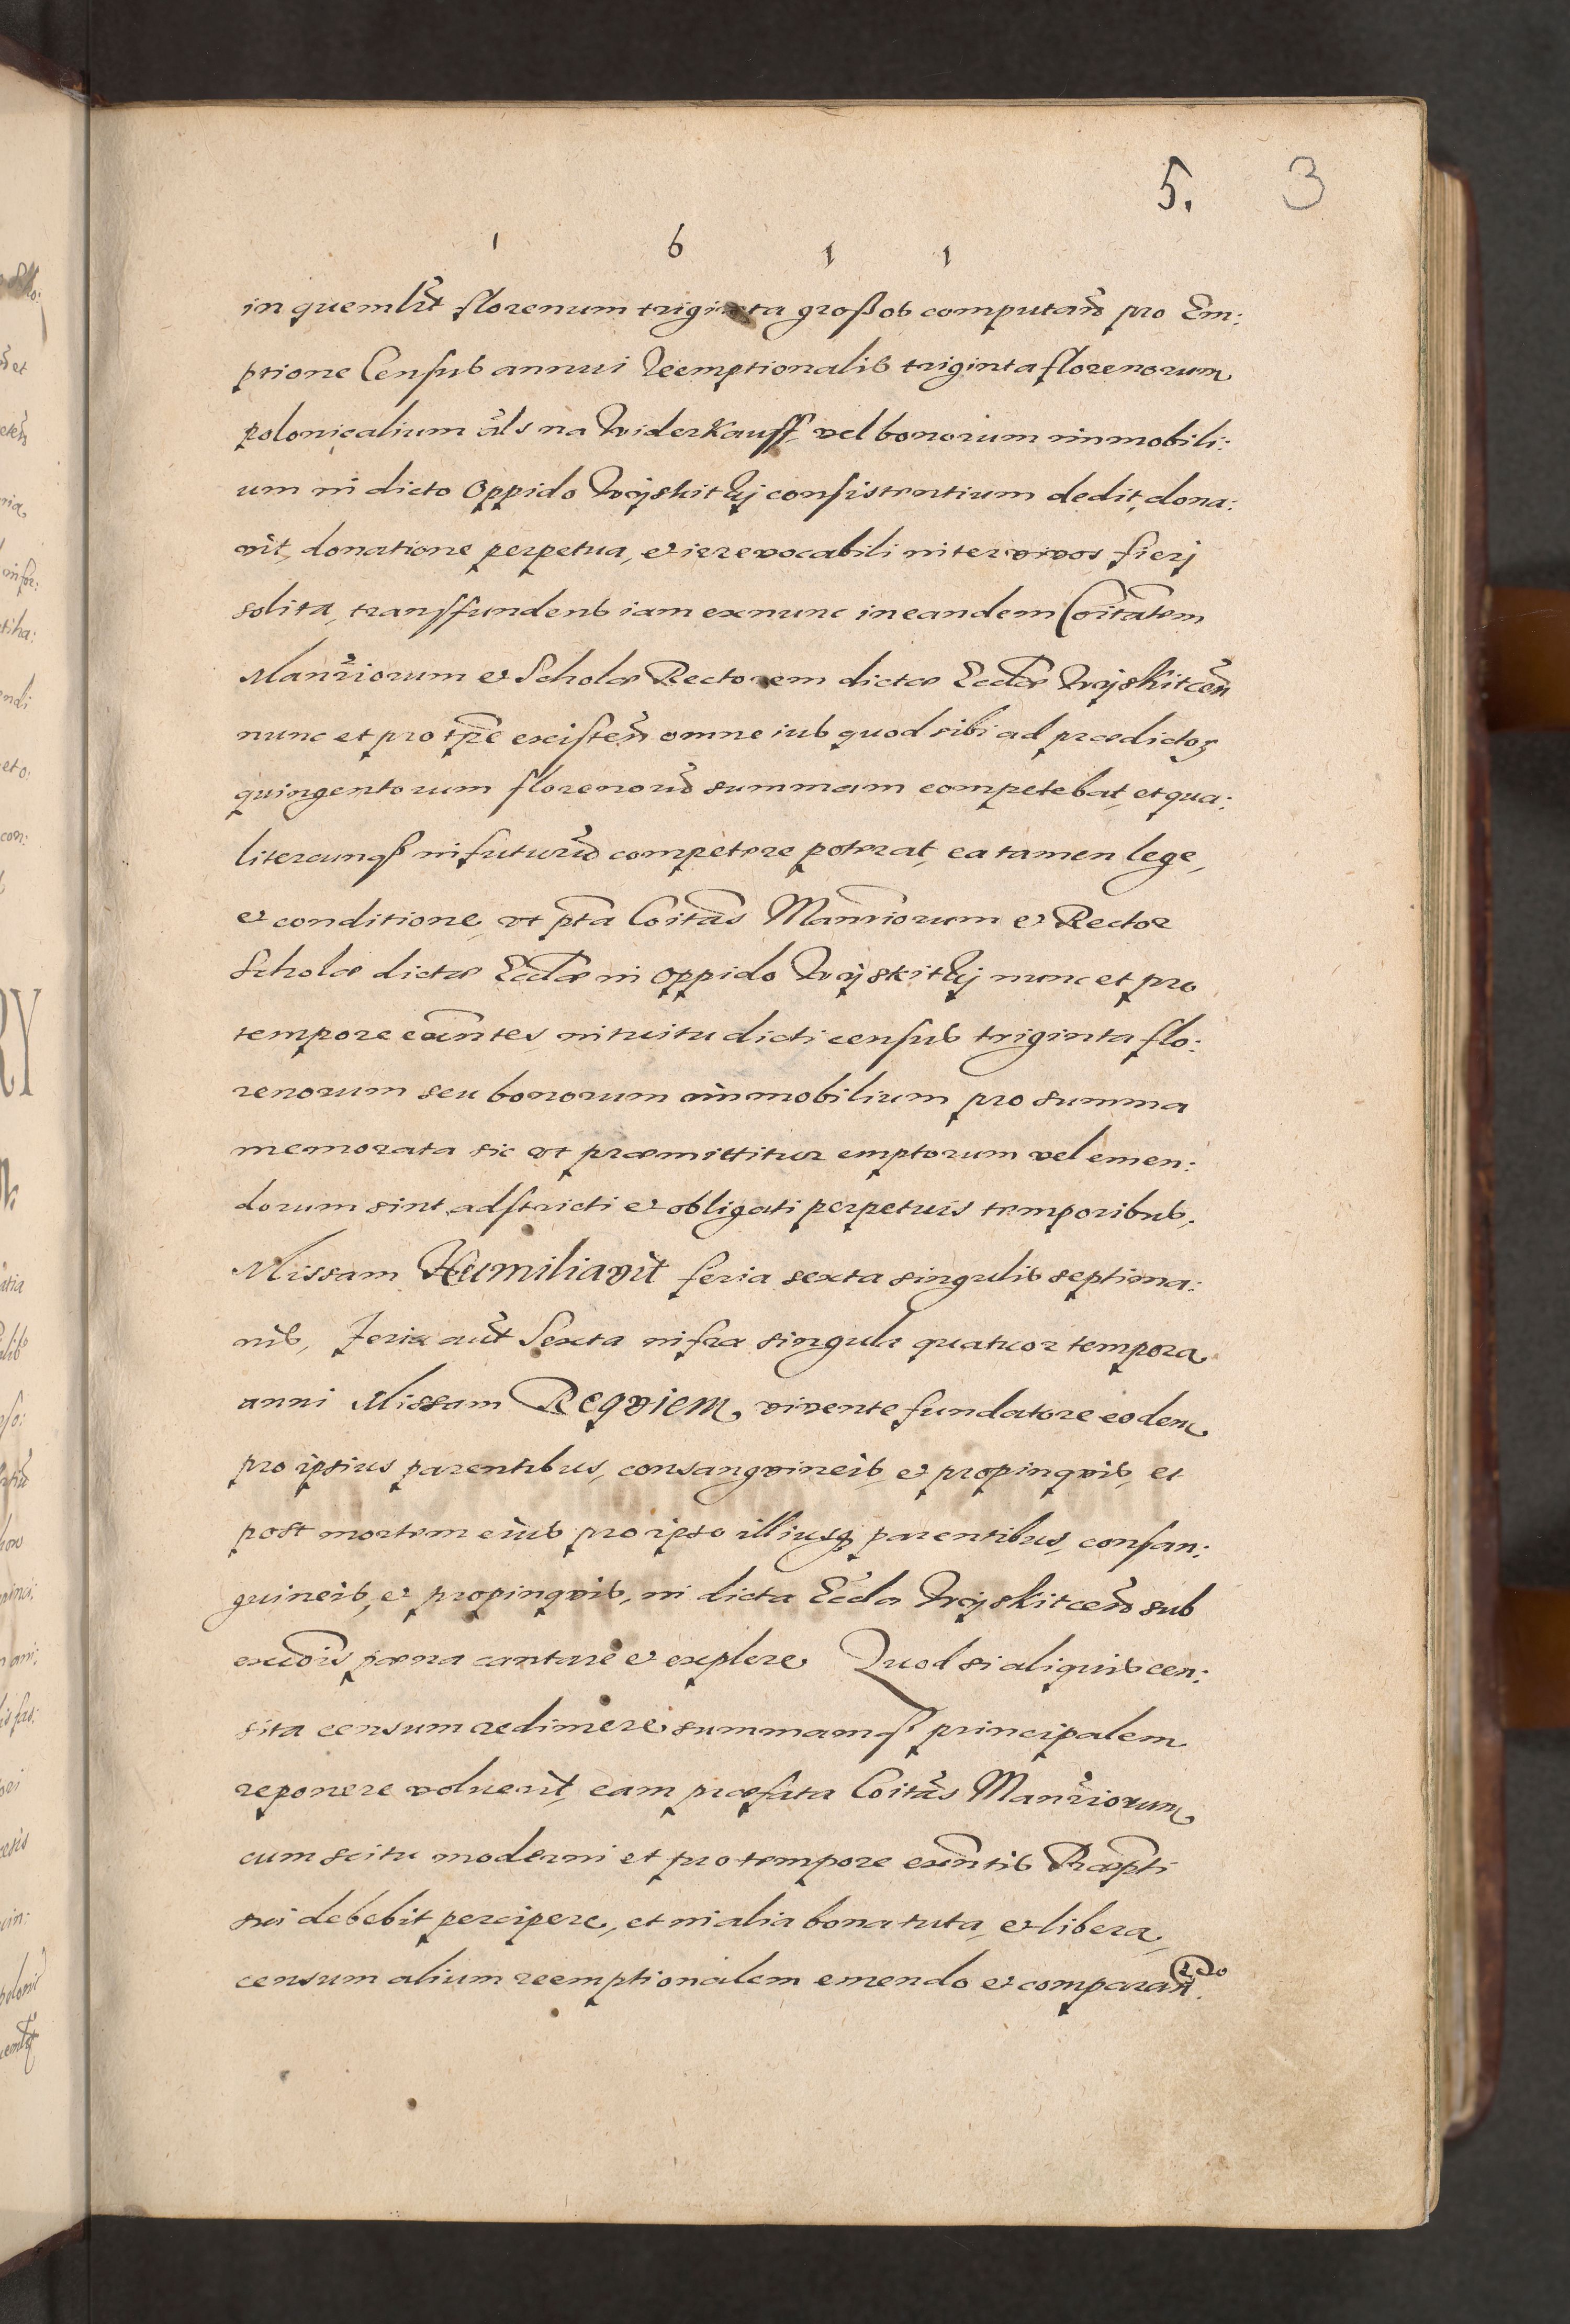 5. 3
1 6 1 1
in quemlt̃ florenum triginta großos computañ pro Em:
ptione Census annui Reemptionalis triginta florenorum
polonicalium als na WiderKauff, vel bonorum immobili:
um in dicto Oppido Wyskitky consistentium dedit, dona:
vit, donatione perpetua, et irrevocabili inter vivos fierj
solita, transfundens iam ex nunc in eandem Coitatem
Mansr̃iorum et Scholæ Rectorem dictæ Eccłæ Wyskitceñ
nunc et pro tp̃re existeñ omne ius quod sibi ad prædictoꝝ
quingentorum florenorũ summam competebat, et qua:
litercunqȝ in futurũ competere poterat, ea tamen lege,
et conditione, vt pt̃a Coitas Mansr̃iorum et Rector
Scholæ dictæ Eccłæ in Oppido Wyskitky nunc et pro
tempore exñtes, intuitu dicti census triginta flo:
renorum seu bonorum immobilium pro summa
memorata sic vt præmittitur emptorum vel emen:
dorum sint adstricti et obligati perpetuis temporibus,
Missam Humiliavit feria sexta singulis septima:
nis, Feria aũt Sexta infra singula quatuor tempora
anni Missam Reqviem, vivente fundatore eodem
pro ipsius parentibus, consangvineis, et propinqvis, et
post mortem eius pro ipso illiusqȝ parentibus, consan:
guineis, et propinqvis, in dicta Eccła Wyskitceñ sub
excõis pæna cantare et explere. Quod si aliquis cen:
sita censum redimere summamqȝ principalem
reponere voluerit, eam præfata Coitas Mansr̃iorum
cum scitu moderni et pro tempore exñtis Præpti
sui debebit percipere, et in alia bona tuta, et libera,
censum alium reemptionalem emendo et comparan
do